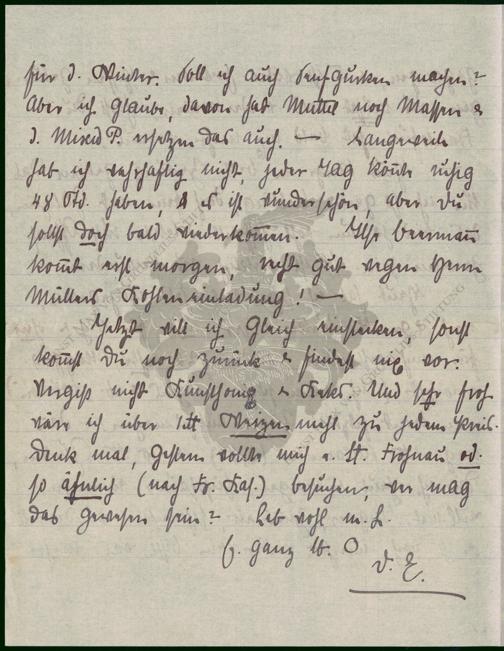 für d. Winter. Soll ich auch Senfgurken machen?
Aber ich glaube, davon hat Muttel noch Massen &
d. Mixed P. ersetzen das auch. — Langeweile
hab ich wahrhaftig nicht, jeder Tag könnte ruhig
48 Std. haben, & es ist wunderschön, aber Du
sollst doch bald wiederkommen. Ilse
kommt erst morgen, recht gut wegen Herrn
Müllers Kohleneinladung! —
Jetzt will ich gleich einstecken, sonst
kommst Du noch zurück & findest nix vor.
Vergiß nicht Kunsthonig & Keks. Und sehr froh
wäre ich über Weizenmehl zu jedem Preis.
Denk mal, gestern wollte mich e. Frohnau od.
so ähnlich (nach Fr. Kas.) besuchen, wer mag
das gewesen sein? Leb wohl m. L.
G. ganz lb. O
D. E.